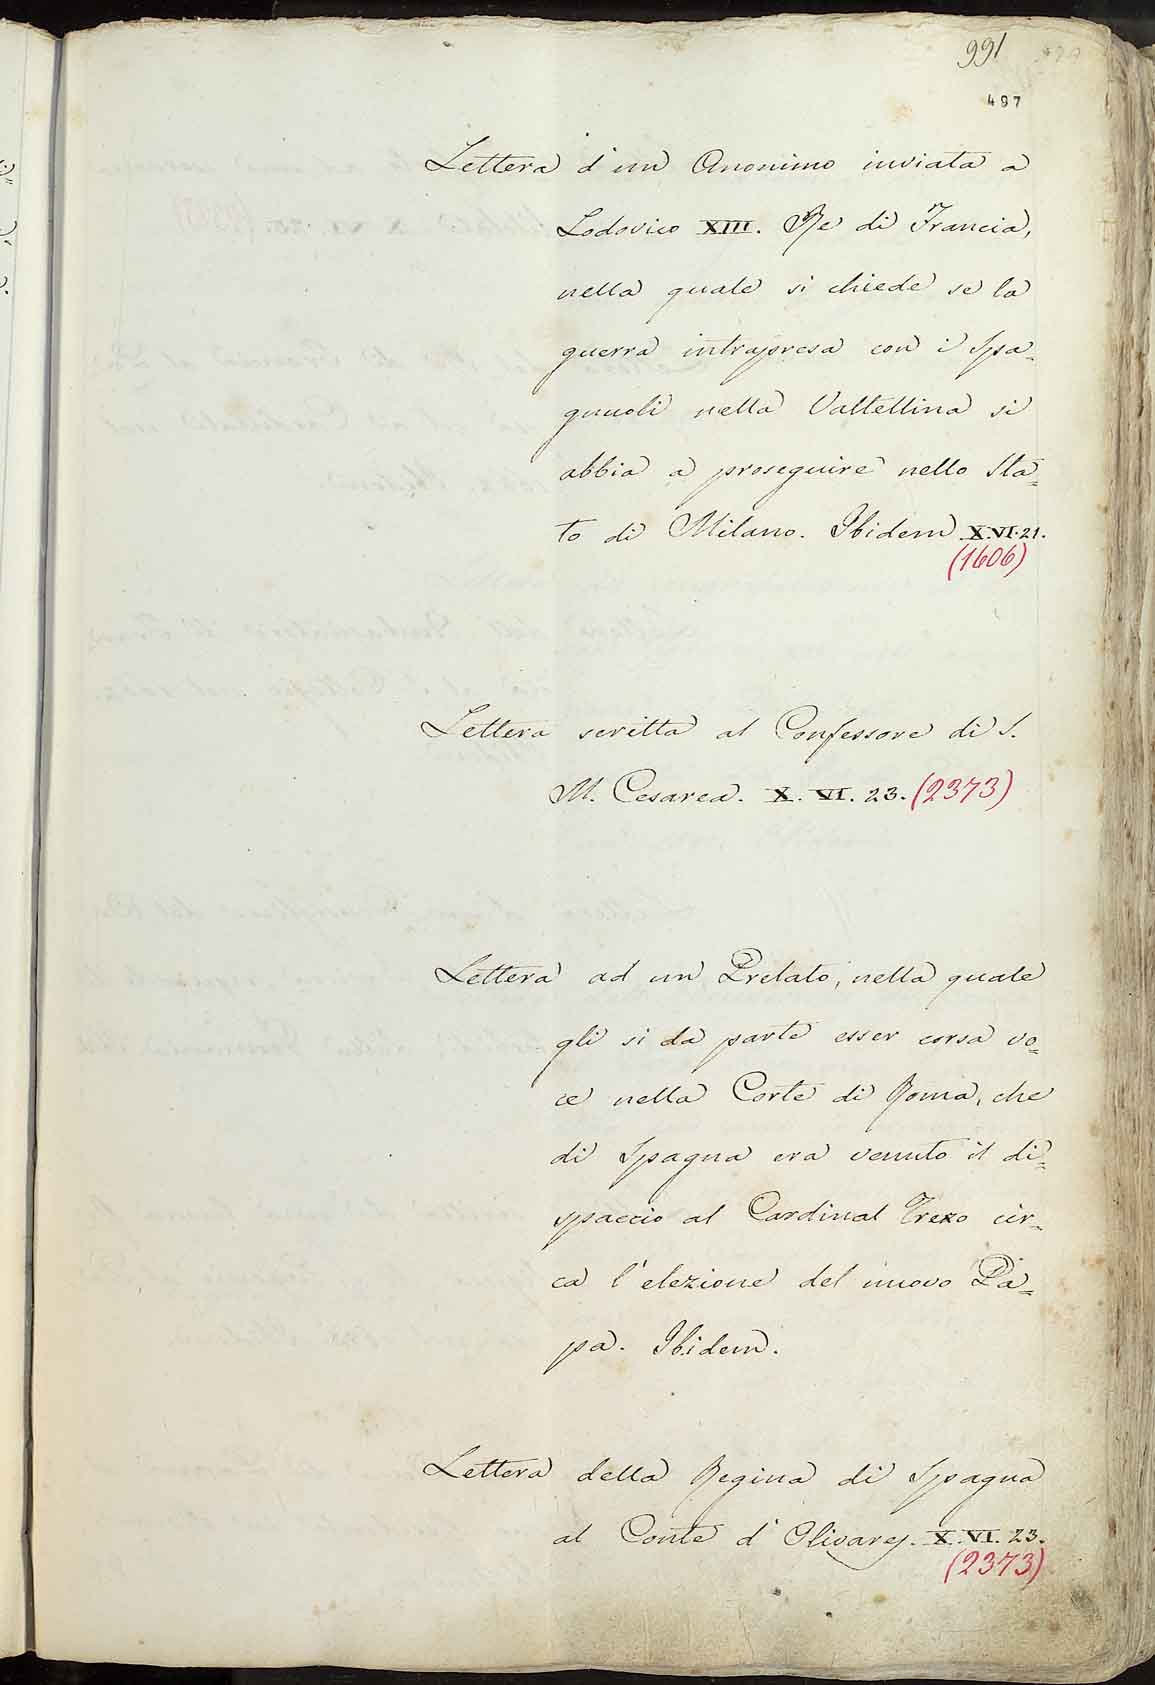 991
497
Lettera d'un Anonimo inviata a
Lodovico XIII. Re di Francia,
nella quale si chiede se la
guerra intrapresa con i Spa-
gnuoli nella Valtellina si
abbia a proseguire nello Sta=
to di Milano. Ibidem X.VI.21.
(1606)
Lettera scritta al Confessore di S.
M. Cesarea. X. VI. 23. (2373)
Lettera ad un Prelato, nella quale
gli si da parte esser corsa vo=
ce nella Corte di Roma, che
di Spagna era venuto il di=
spaccio al Cardinal Trexo cir=
ca l'elezione del nuovo Pa=
pa. Ibidem.
Lettera della Regina di Spagna
al Conte d'Olivares. X. VI. 23.
(2373)